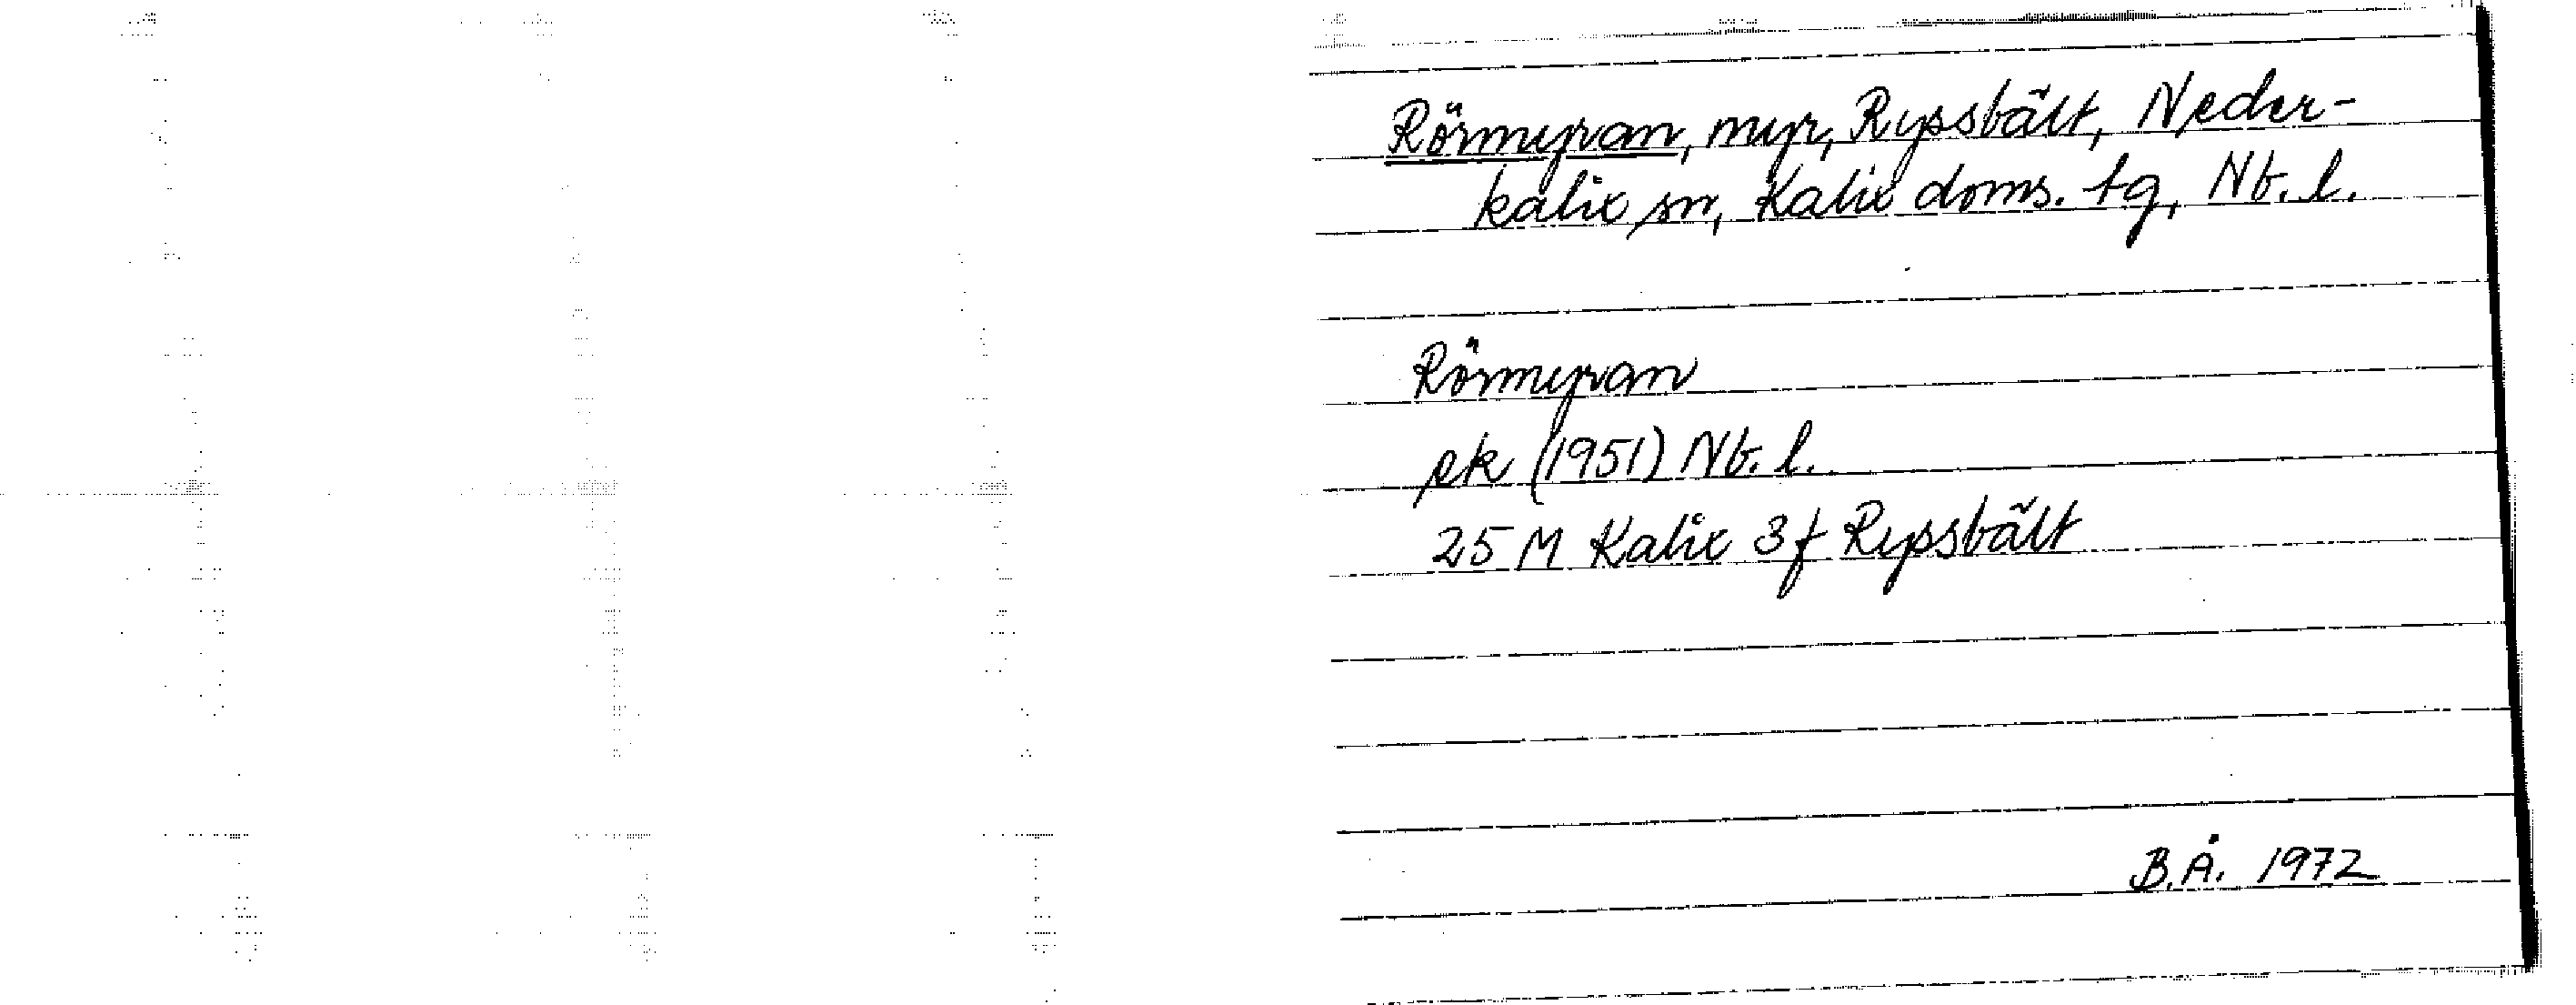 Rörmyran, myr, Ryssbält, Neder-
kalix sn, Kalix doms. tg, Nb. l.
Rörmyran
ek (1951) Nb. l.
25 M Kalix 3f Ryssbält
B.Å. 1972